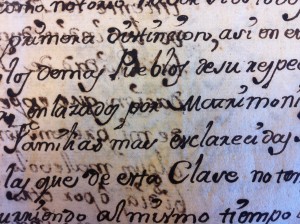 como notoria
primera distincion, asi en e
los demas Pueblos de su respe
enlazado, por Matrimoni
familias mas esclarecidas
las que de esta Clase no ton
urriendo al mismo tiempo